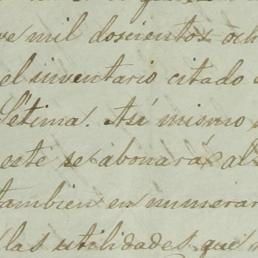 ve mil doscientos och
el inventario citado
Sétima. Así mismo
este se abonará al
tambien en numerar
las utilidades que